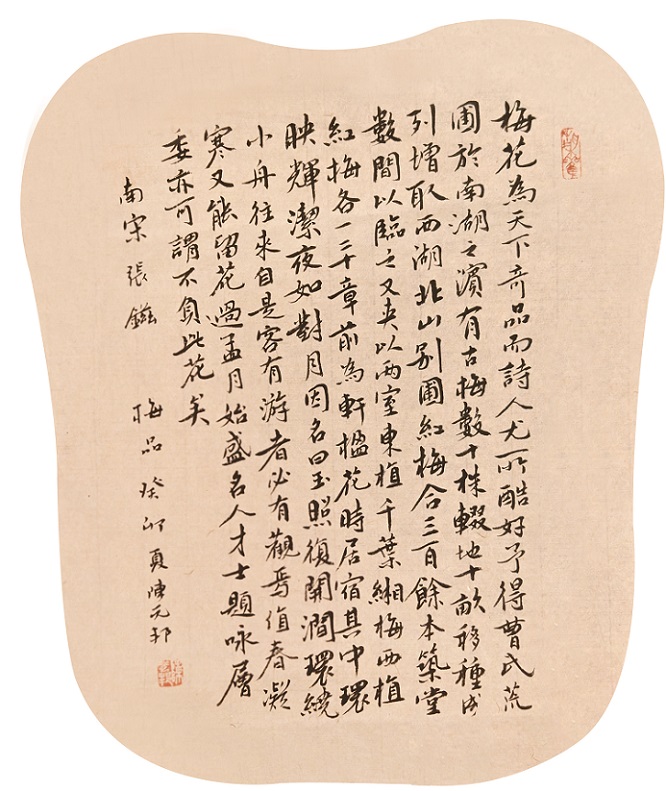 梅花為天下奇品而詩人尤所酷好予得曹氏荒
圃於南湖之濱有古梅數十株輟地十畝移種成
列增取西湖北山別圃紅梅合三百餘本築堂
數間以臨之又夾以兩室東植千葉緗梅西植
紅梅各一二十章前為軒楹花時居宿其中環
映輝潔夜如對月因名曰玉照復開澗環繞
小舟往來自是客有游者必有觀焉值春凝
寒又能留花過孟月始盛名人才士題咏層
委亦可謂不負此花矣
南宋張鎡 梅品癸卯夏陳元邦